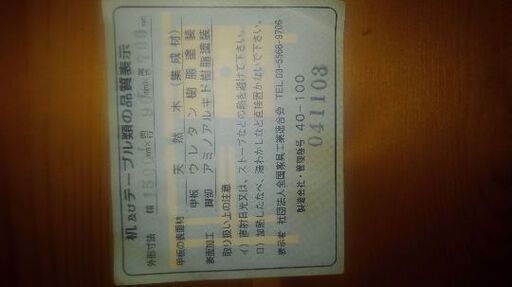 机及びテーブル類の品質表示
外形寸法 幅1500mm×奥行900mm×高700mm
甲板の表面材 天然木(集成材)
表面加工 甲板 ウレタン樹脂塗装
脚部 アミノアルキド樹脂塗装
取り扱い上の注意
イ) 直射日光又は、ストーブなどの熱を避けて下さい。
ロ) 加熱したなべ、湯わかしなど直接置かないで下さい。
表示者 社団法人全国家具工業連合会 TEL 03-5566-9706
製造会社・管理番号 40-100
041103